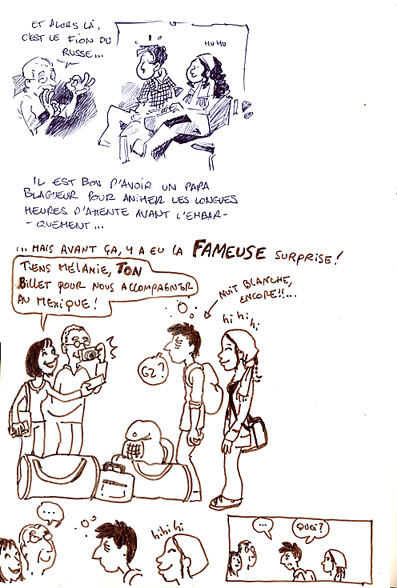 ET ALORS LÀ,
C'EST LE FION DU
RUSSE...
HU HU
IL EST BON D'AVOIR UN PAPA
BLAGUEUR POUR ANIMER LES LONGUES
HEURES D'ATTENTE AVANT L'EMBAR-
-QUEMENT...
... MAIS AVANT ÇA, Y A EU LA FAMEUSE SURPRISE!
TIENS MÉLANIE, TON
BILLET POUR NOUS ACCOMPAGNER
AU MEXIQUE!
NUIT BLANCHE,
ENCORE!!...
hi hi hi
GZ?
...
hi hi hi
...
QUOI?